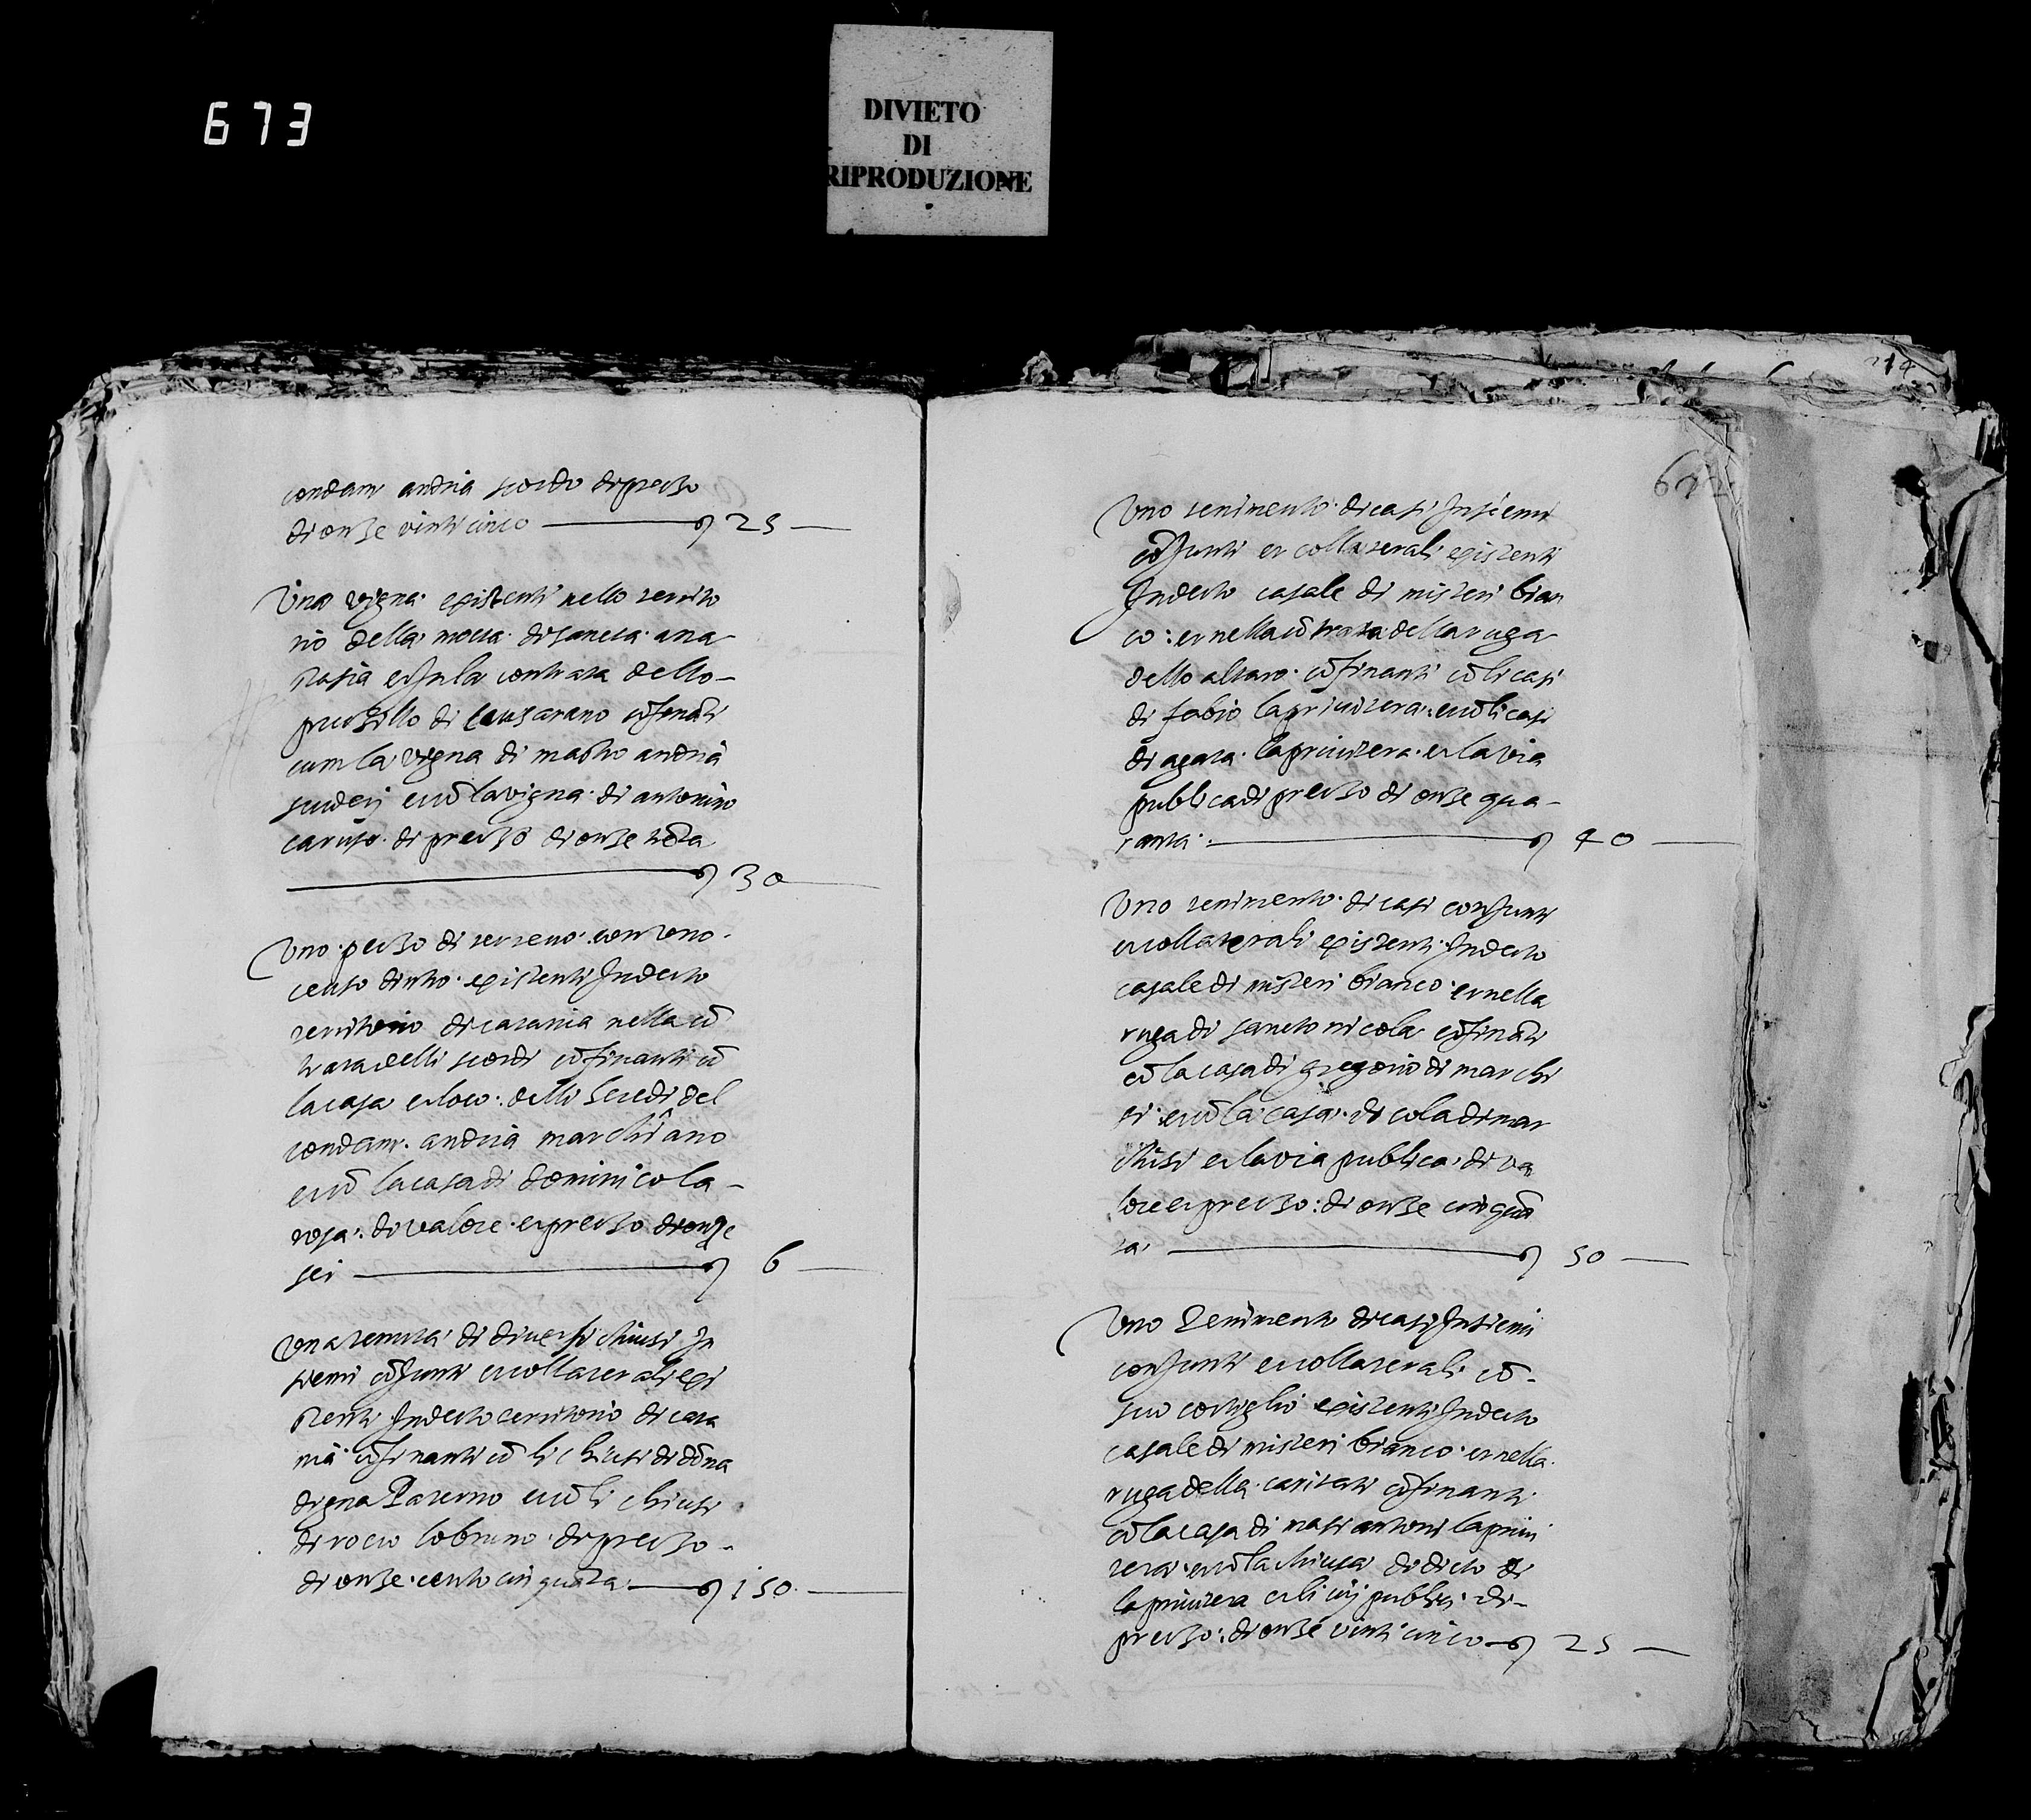 673
DIVIETO
DI
RIPRODUZIONE
214
condam andria scordo di preczo
di onze vinticinco 25
Una vigna existenti nello territo
rio della mocta di sancta ana
stasia et in la contrata dello
di confinãti
cum la vigna di mastro andria
scuderj et cũ la vigna di antonino
caruso di preczo di onze trẽta
30
Uno peczo di terreno con uno
censo dintro existenti in decto
territorio di catania nella cõ
trata delli scordi cõfinanti cũ
la casa et loco delli heredi del
condam andria marchisano
et cũ la casa di dominico la
rosa di valore et preczo di onze
sei 6
Una tenuta di diversi chiusi in
siemi cõjunti et collaterali exi
stenti in decto territorio di cata
nia cõfinanti cũ li chiusi di dõna
digna Paterno et cũ li chiusi
di rocco lo bruno di preczo
di onze cento cinquãta 150
Uno tenimento di casi insiemi
cõjunti et collaterali existenti
in decto casale di misteri bian
co et nella cõtrata della ruga
dello altaro cõfinanti cũ li casi
di fabio la privitera et cũ li casi
di agata la privitera et la via
publica di preczo di onze qua
ranta 40
Uno tenimento di casi conjunti
et collaterali existenti in decto
casale di misteri bianco et nella
ruga di sancto nicola cõfinãti
cũ la casa di gregorio di marchi
si et cũ la casa di cola di mar
chisi et la via publica di va
lore et preczo di onze cinquã
ta 50
Uno Tenimento di casi insiemi
conjunti et collaterali cũ
suo cortiglio existenti in decto
casale di misteri bianco et nella
ruga della caritati cõfinanti
cũ la casa di masi antoni la privi
tera et cũ la chiusa di dicto di
la privitera et li vij publici di
preczo di onze vinti cinco 25